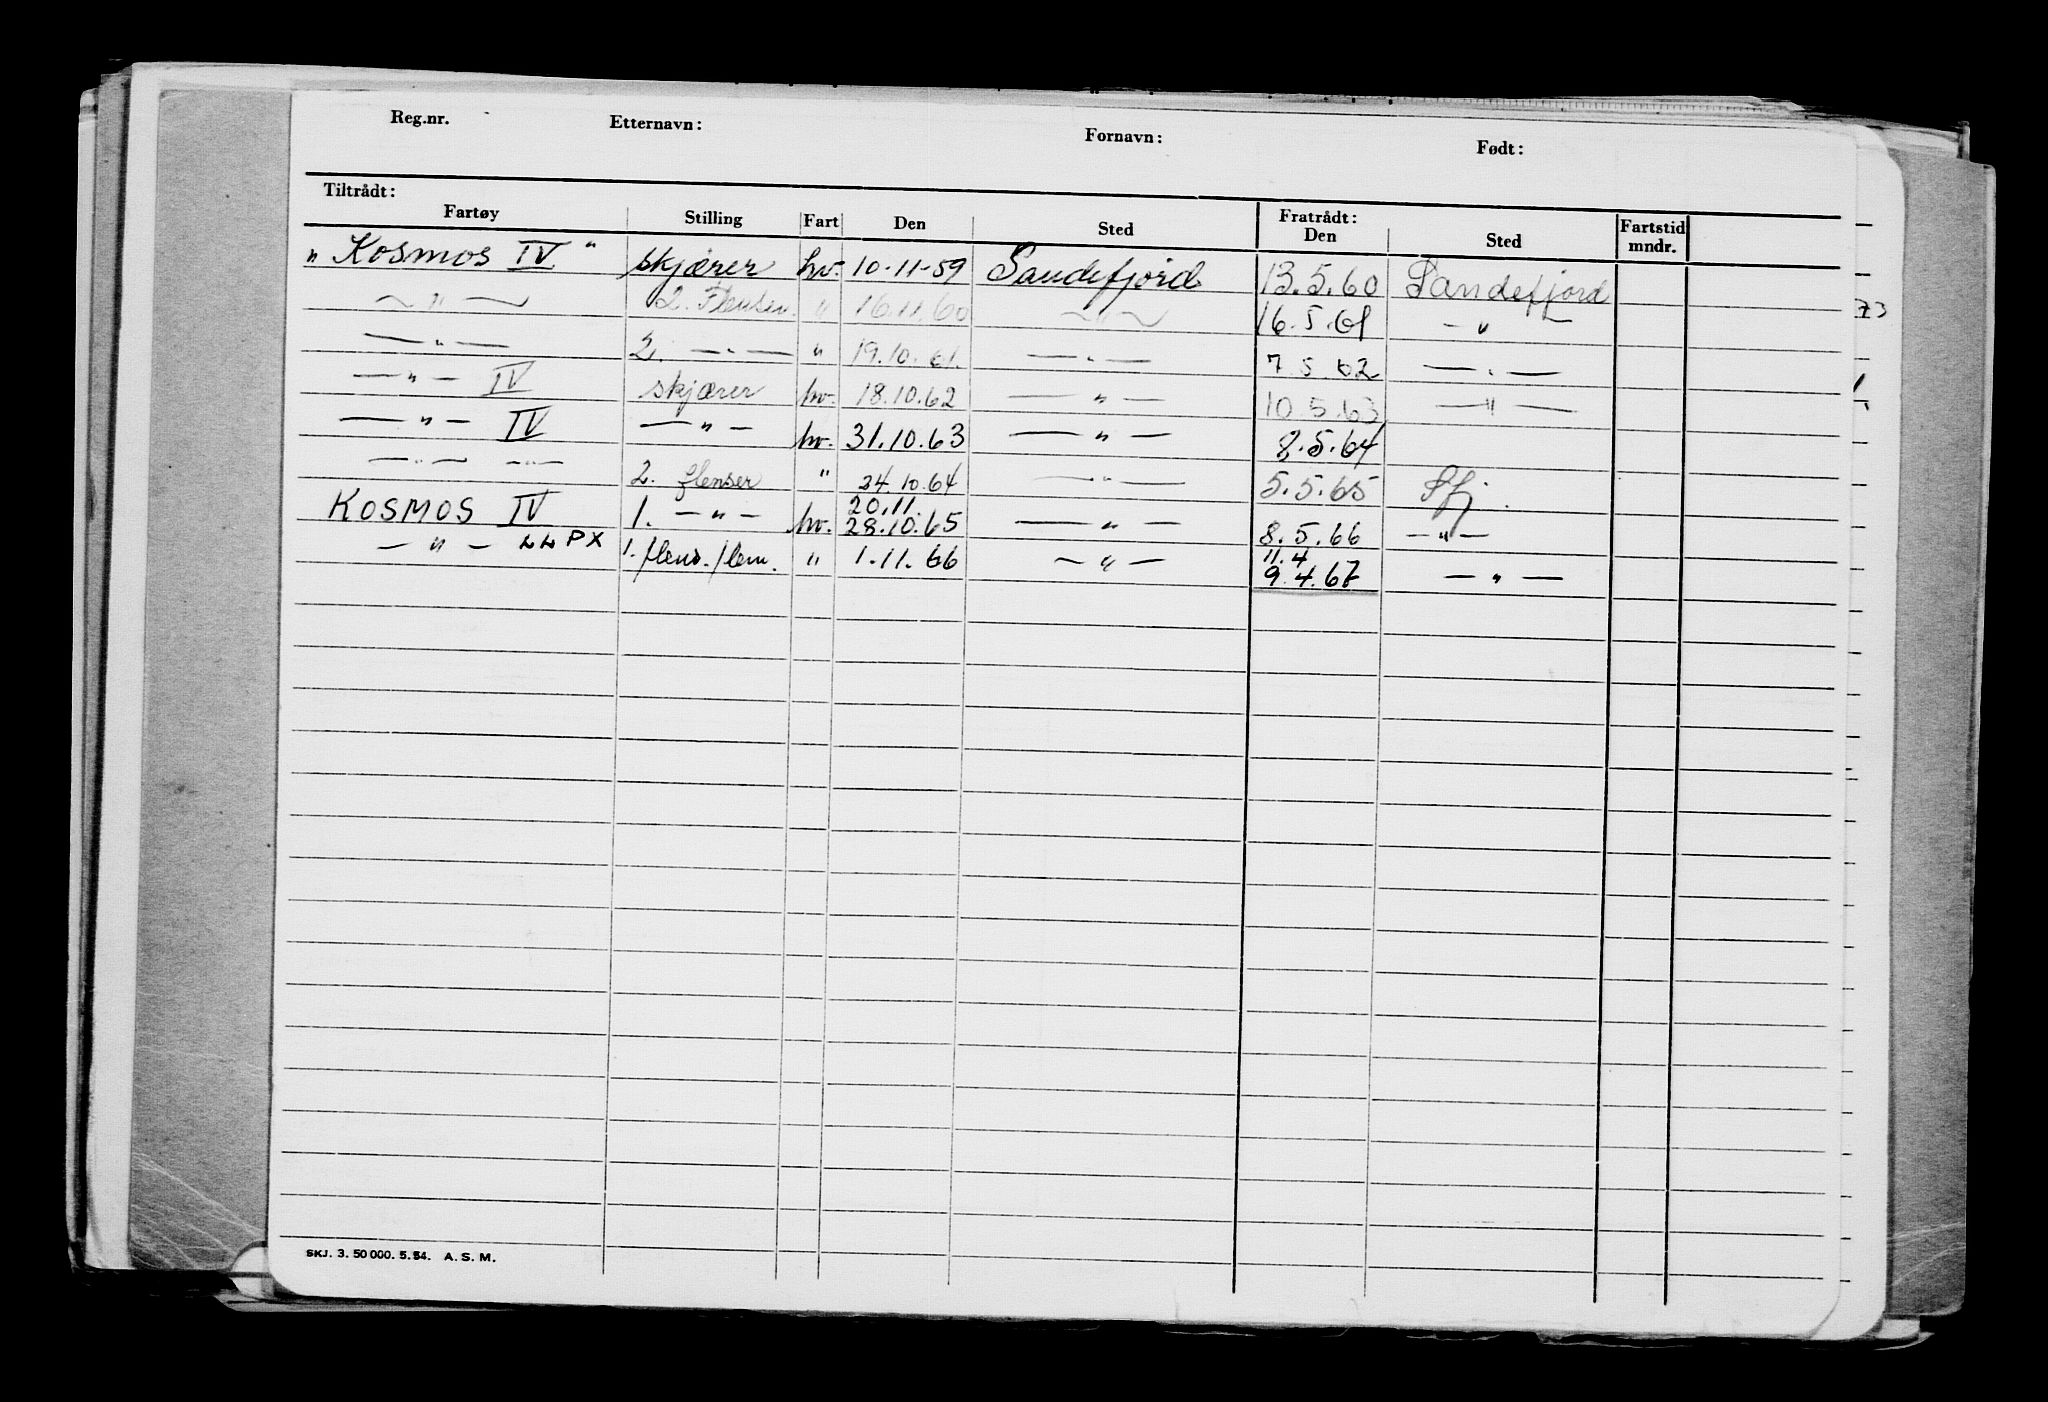 Reg.nr. Etternavn: Fornavn: Født:
Tiltrådt: Fratrådt:
Fartøy Stilling Fart Den Sted Den Sted Fartstid mndr.
„ Kosmos IV " skjærer hv. 10-11-59 Sandefjord 13.5.60 Sandefjord
— " — 2. Flenser. " 16.11.60 — " — 16.5.61 — " —
— " — 2. — " — " 19.10.61. — " — 7.5.62 — " —
— " — IV skjærer hv. 18.10.62 — " — 10.5.63 — " —
— " — IV — " — hv. 31.10.63 — " — 8.5.64
— " — — " — 2. flenser " 24.10.64 — " — 5.5.65 Sfj.
KOSMOS IV 1. — " — hv. 20.11. 28.10.65 — " — 8.5.66 — " —
— " — LLPX 1. flens./lem. " 1.11.66 — " — 11.4 9.4.67 — " —
73
SKJ. 3. 50 000. 5.54. A. S. M.